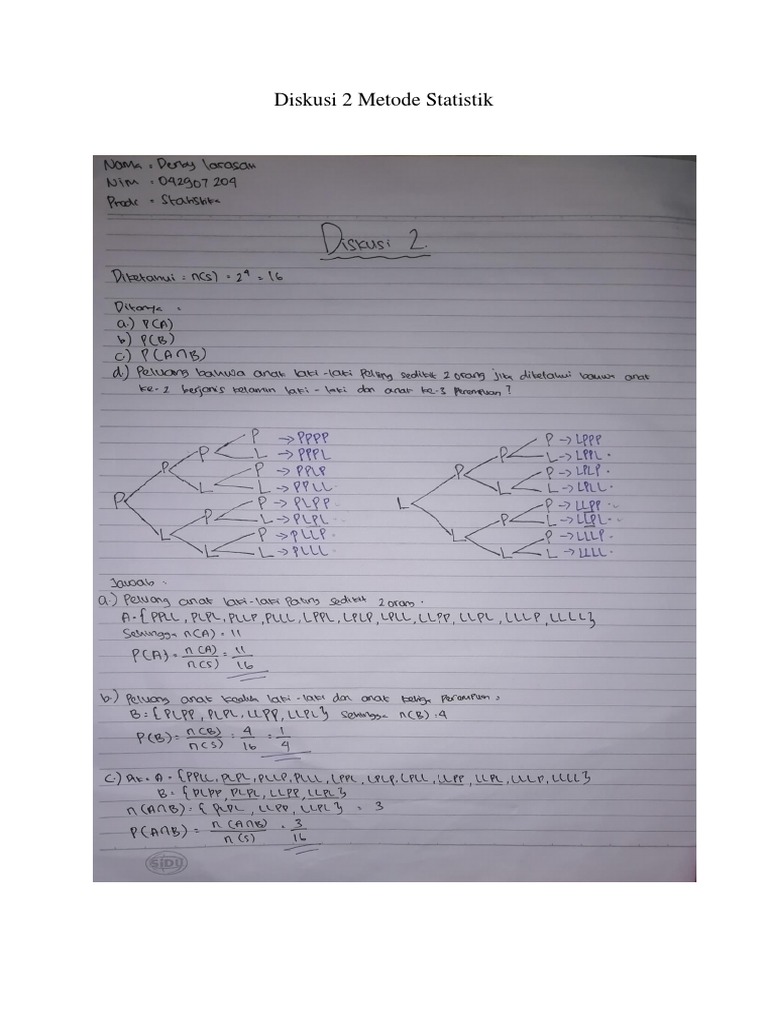 Diskusi 2 Metode Statistik
Nama : Derby Larasati
NIM : 042907209
Prodi : Statistika
Diskusi 2.
Diketahui = n(S) = 2⁴ = 16
Ditanya :
a.) P(A)
b) P(B)
c.) P(A∩B)
d.) Peluang bahwa anak laki-laki paling sedikit 2 orang jika diketahui bahwa anak
ke-2 berjenis kelamin laki-laki dan anak ke-3 Perempuan?
P → PPPP
P
L → PPPL
P
P → PPLP
L
L → PPLL
P
P → PLPP
P
L → PLPL
L
P → PLLP
L
L → PLLL
P → LPPP
P
L → LPPL
P
P → LPLP
L
L → LPLL
L
P → LLPP
P
L → LLPL
L
P → LLLP
L
L → LLLL
Jawab :
a.) Peluang anak laki-laki Paling sedikit 2 orang.
A = {PPLL, PLPL, PLLP, PLLL, LPPL, LPLP, LPLL, LLPP, LLPL, LLLP, LLLL}
Sehingga n(A) = 11
P(A) = n(A)/n(S) = 11/16
b.) Peluang anak kedua laki-laki dan anak ketiga Perempuan =
B = {PLPP, PLPL, LLPP, LLPL} sehingga n(B) = 4
P(B) = n(B)/n(S) = 4/16 = 1/4
c.) Dik = A = {PPLL, PLPL, PLLP, PLLL, LPPL, LPLP, LPLL, LLPP, LLPL, LLLP, LLLL}
B = {PLPP, PLPL, LLPP, LLPL}
n(A∩B) = {PLPL, LLPP, LLPL} = 3
P(A∩B) = n(A∩B)/n(S) = 3/16
SiDU